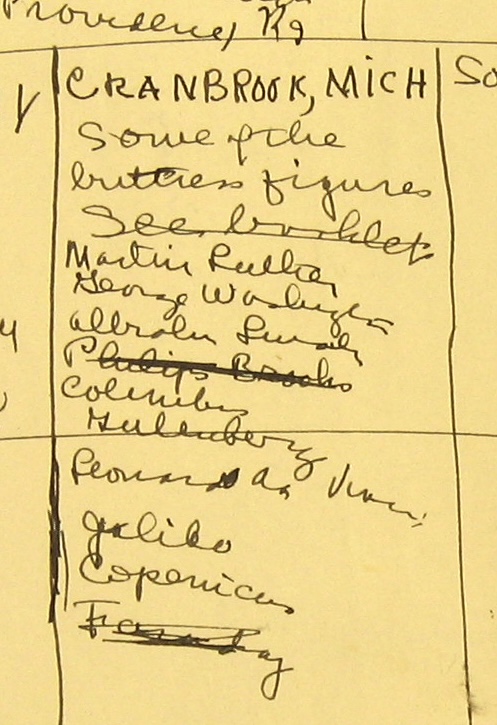 Providence, R
CRANBROOK, MICH
So
Some of the
buttress figures
See booklet
Martin Luther
George Washington
Abraham Lincoln
Philips Brooks
Columbus
Gutenberg
Leonard da Vinci
Galileo
Copernicus
Faraday